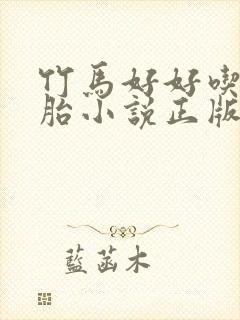 竹馬好好喫
胎小說正版
藍菡木